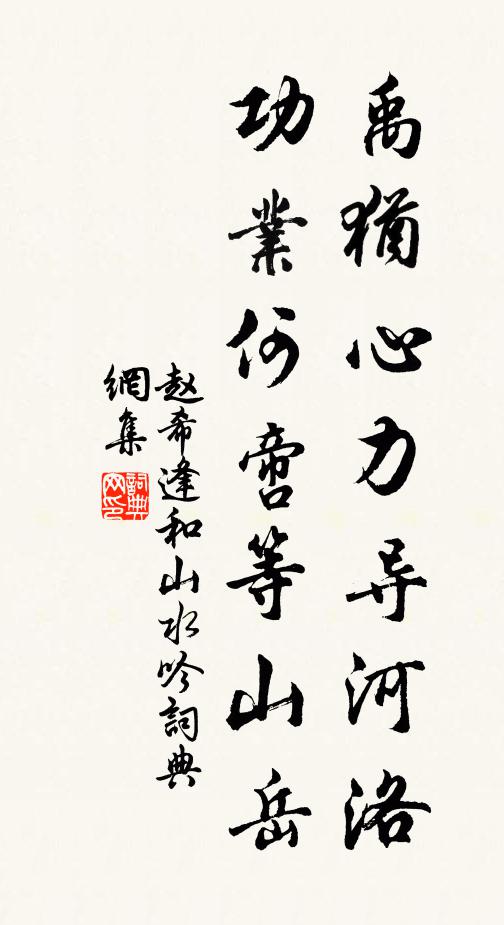 禹猶心力导河洛
功業何啻等山岳
赵希逢和山水吟詞典
網集
詞典
网印